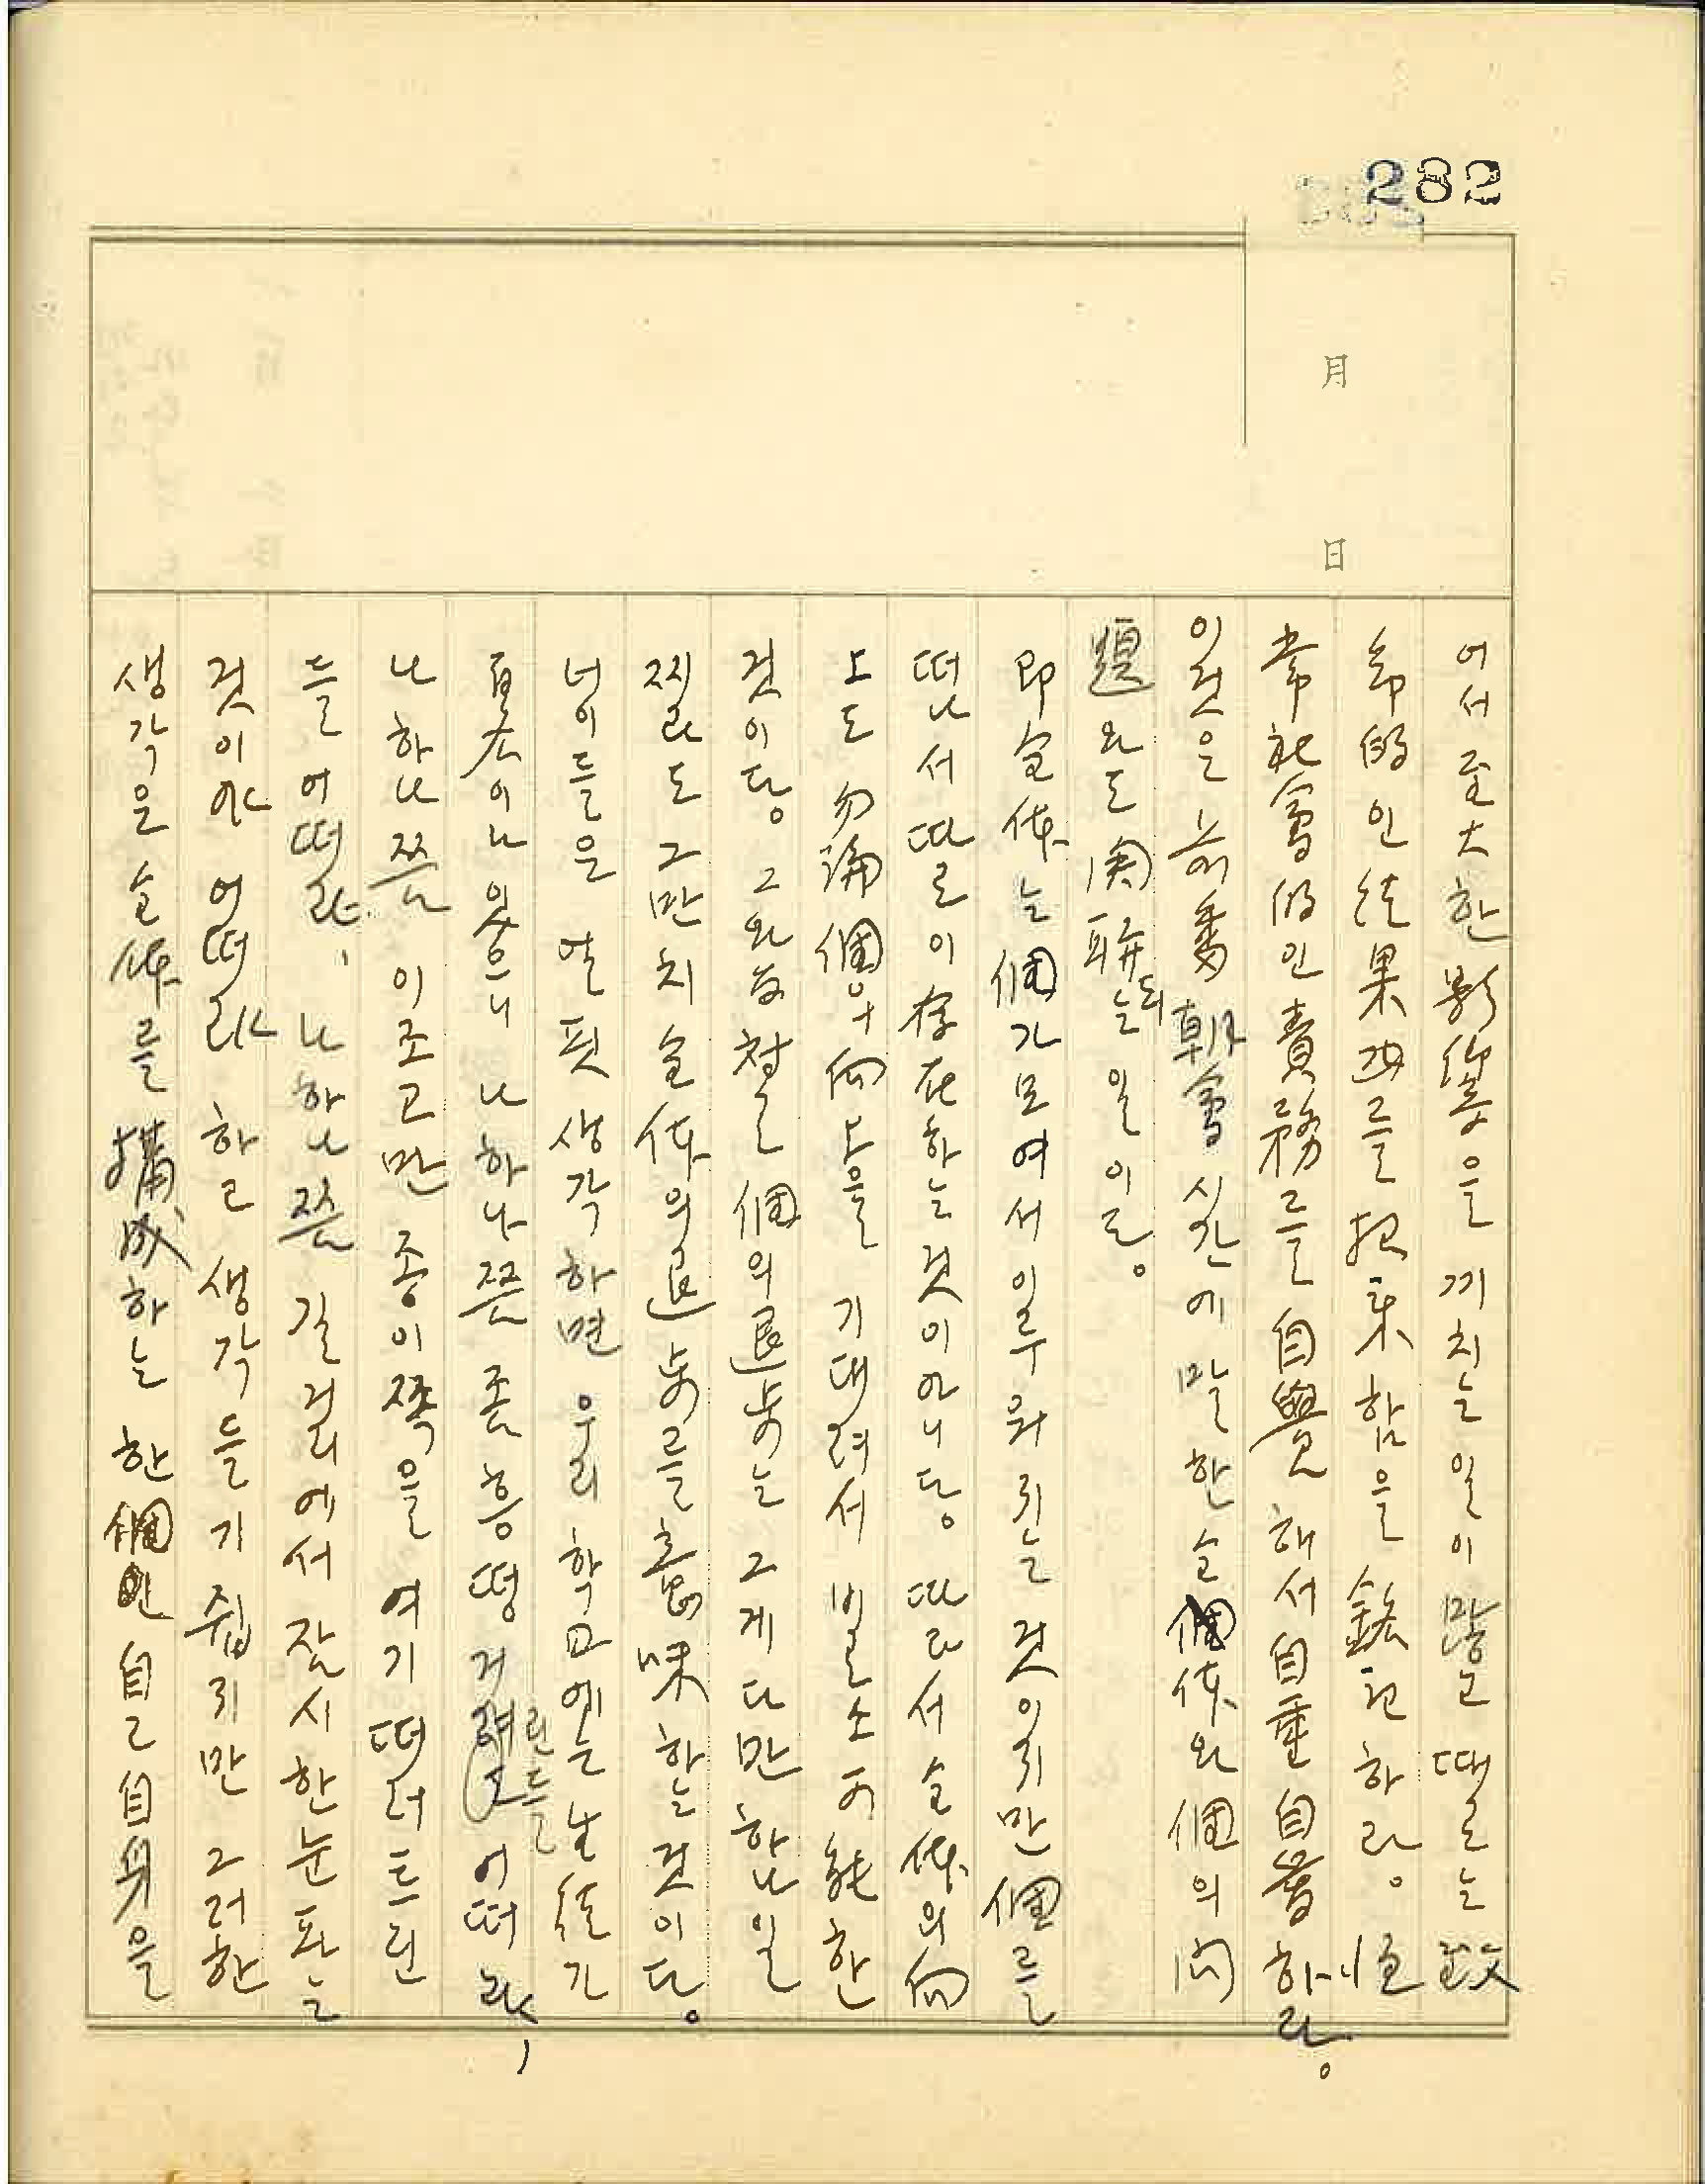 282
月
日
어서 至大한 影響을 끼치는 일이 많고 때로는 致
命的인 結果까를 招來함을 銘記하라. 恒
常 社會的인 責務를 自覺해서 自重自愛하라.
이것은 前番 朝會 시간에 말한 全個体와 個의 問
題와도 関聯되는 일이로.
即 全体는 個가 모여서 이루워 지는 것이지만 個를
떠나서 따로이 存在하는 것이 아니다. 따라서 全体의 向
上도 勿論 個의 向上을 기대려서 비로소 可能한
것이다. 그와 反対로 個의 退步는 그게 다만 하나 일
찌라도 그만치 全体의 退步를 意味하는 것이다.
너이들은 얼핏 생각하면 우리 학교에는 生徒가
百名이나 있으니 나 하나 쯤 좀 흥떵거린들 어떠랴,
나 하나 쯤 이 조고만 종이쪽을 여기 떠러트린
들 어떠랴, 나 하나 쯤 길 걸에서 잠시 한눈 파는
것이야 어떠랴 하고 생각들기 쉽지만 그러한
생각을 全体를 搆成하는 한 個인 自己 自身을